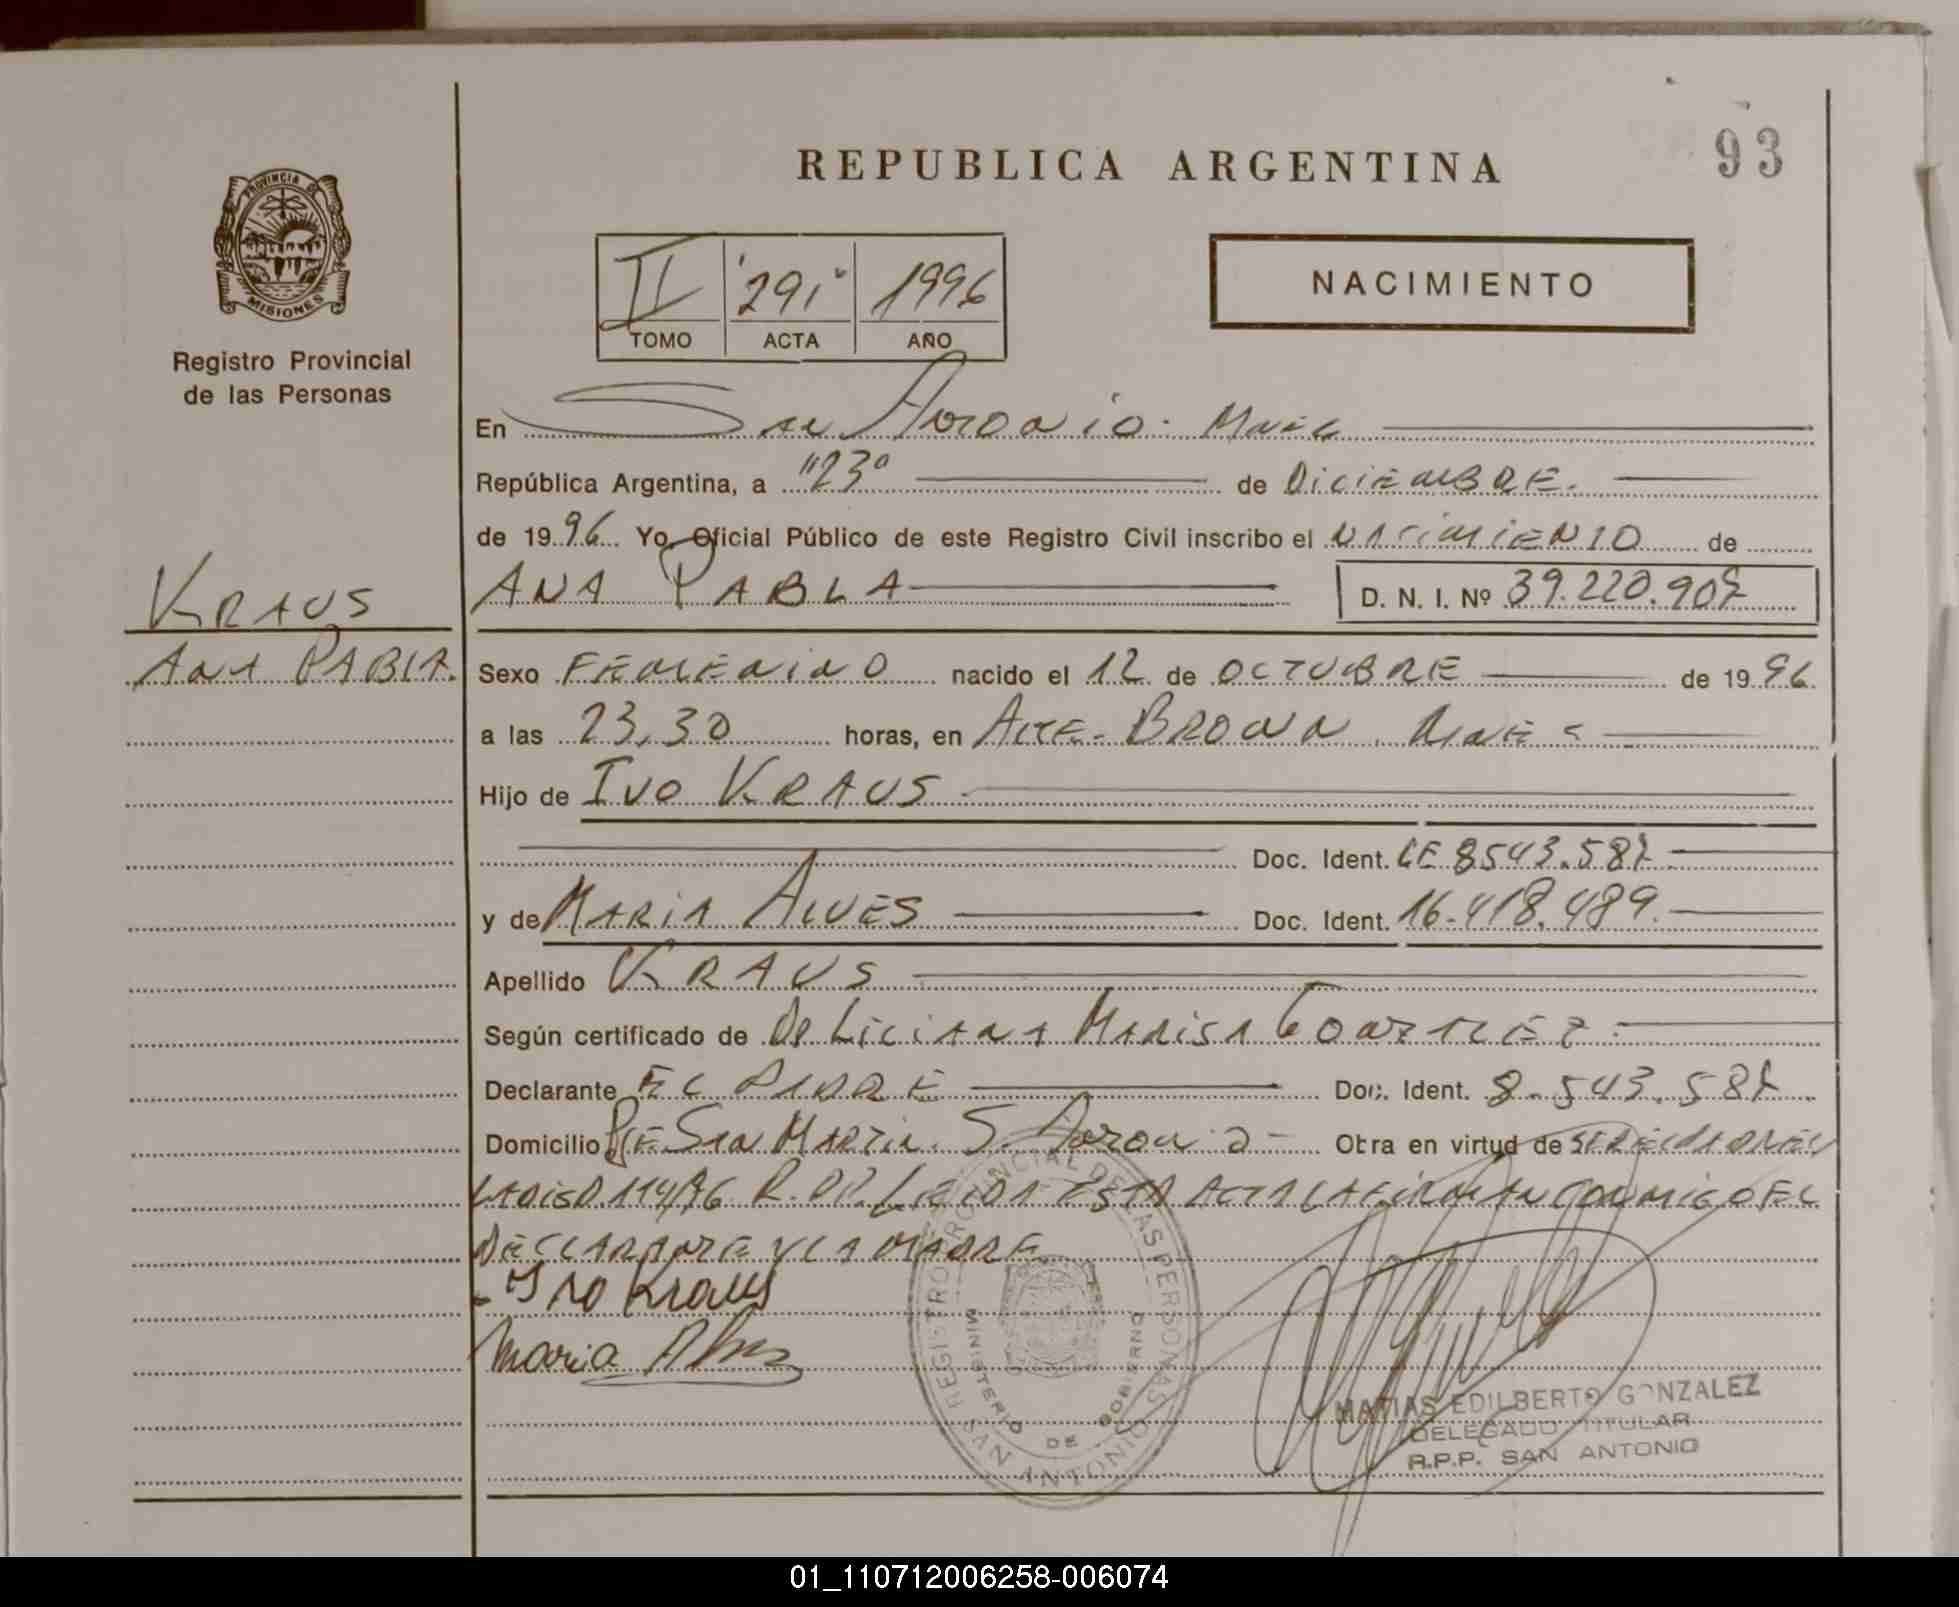 REPUBLICA ARGENTINA
93
PROVINCIA DE
MISIONES
Registro Provincial
de las Personas
II "291" 1996
TOMO ACTA AÑO
NACIMIENTO
En San Antonio. Mnes
República Argentina, a "23" de DICIEMBRE.
de 1996 Yo, Oficial Público de este Registro Civil inscribo el NACIMIENTO de
ANA PABLA D. N. I. Nº 39.220.907
KRAUS
ANA PABLA.
Sexo FEMENINO nacido el 12 de OCTUBRE de 1996
a las 23,30 horas, en ALTE. BROWN. Mnes
Hijo de IVO KRAUS
Doc. Ident. LE 8543.587
y de MARIA ALVES Doc. Ident. 16.418.489.
Apellido KRAUS
Según certificado de LILIANA MARISA GONZALEZ.
Declarante EL PADRE Doc. Ident. 8.543.587
Domicilio SAN MARTIN. S. ANTONIO Otra en virtud de
114/96 LEIDA ESTA ACTA LA FIRMAN CONMIGO EL
DECLARANTE Y LA MADRE
Ivo Kraus
Maria Alves
REGISTRO PROVINCIAL DE LAS PERSONAS
MINISTERIO DE GOBIERNO
SAN ANTONIO
MATIAS EDILBERTO GONZALEZ
DELEGADO TITULAR
R.P.P. SAN ANTONIO
01_110712006258-006074